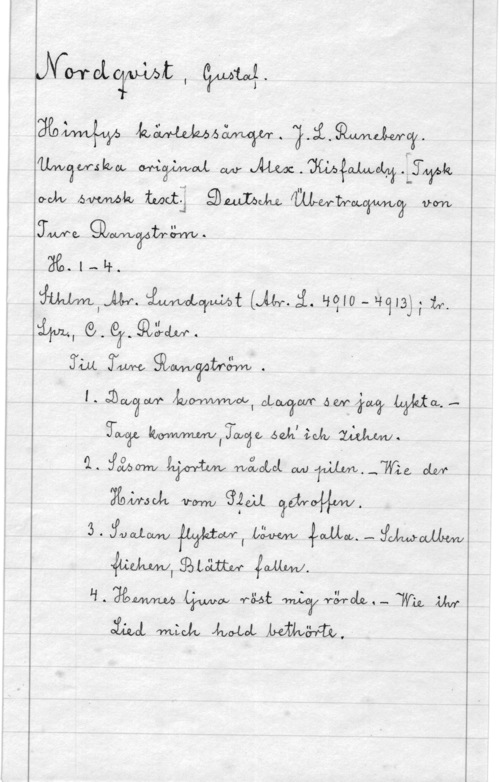 Nordqvist, Gustaf.
Himfys kärlekssånger. J. L. Runeberg.
Ungerska original av Alex. Kisfaludy. [Tysk
och svensk text.] Deutsche Übertragung von
Ture Rangström.
H. 1-4.
Sthlm, Abr. Lundquist (Abr. L. 4910-4913); tr.
Lpz., C. G. Röder.
Till Ture Rangström.
1. Dagar komma, dagar ser jag lykta. -
Tage kommen, Tage seh' ich ziehen.
2. Såsom hjorten nådd av pilen. - Wie der
Hirsch vom Pfeil getroffen.
3. Svalan flyktar, löven falla. - Schwalben
fliehen, Blätter fallen.
4. Hennes ljuva röst mig rörde. - Wie ihr
Lied mich hold bethörte.